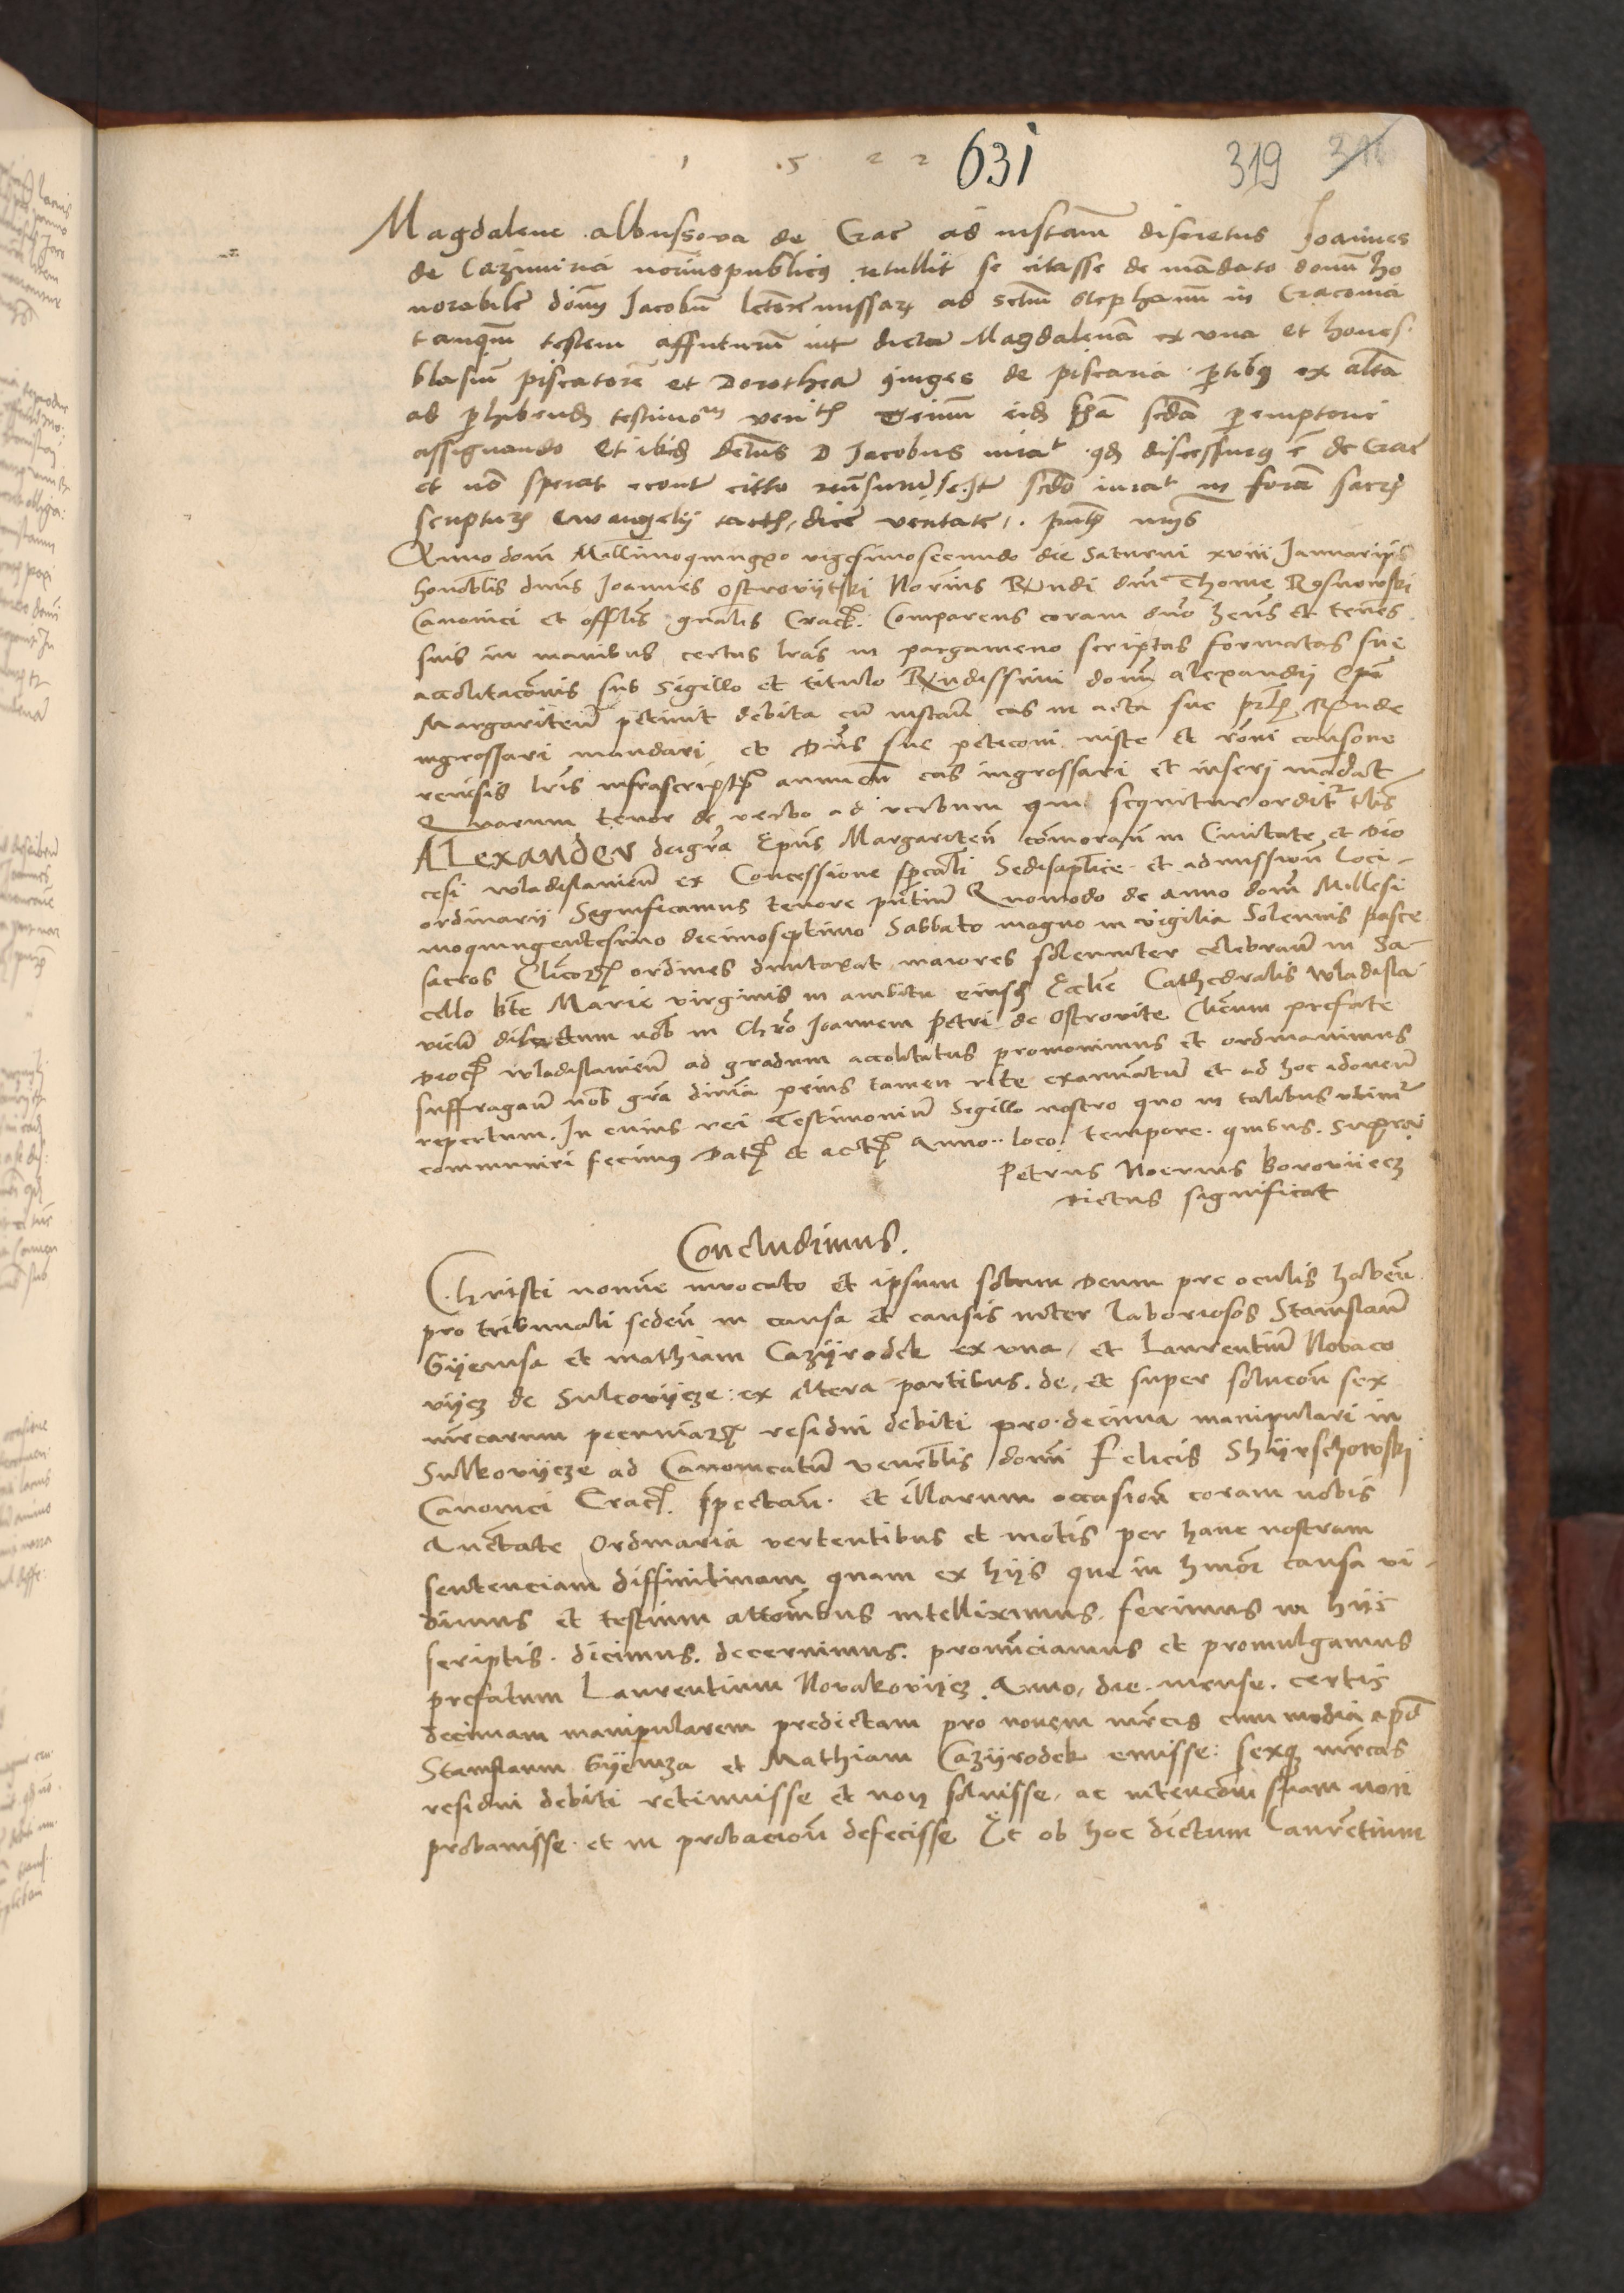 1 5 2 2 631 319
Magdalene albussova de Crac ad instam̄ discretus Joannes
de Cazimiria nor̄ius publicus retullit se citasse de mādato domī ho
norabilē dōm Jacobū missarꝫ ad sctūm Stephanū in Cracovia
tanqm̄ testem affuturū int̄ dictā Magdalenā ex vna et hones.
blasiū piscatorē et Dorotheā ꝯiuges de piscaria ꝑtibꝰ ex altā
ad ꝑhibendꝫ testimoⁿⁱᵘ veritꝭ ꝑemptorie
assignando Et ibidꝫ dictus D Jacobus iurat ꝙ discessurꝰ ē de Crac
et nō sperat citto iurat in formā sacrꝭ
scripturꝭ Ewangelij tactꝭ, dicē veritatē.
Anno domī Millimoquingꝫo vigesimosecundo die Saturni xviij Januarij
honoblis dnūs Joannes Ostrovijtski Nor̄ius Rūndi dnī Thome Rosnowski
Canonici et offlis gn̄alis Cracꝭ. Comparens coram dn̄o hens et tenēs
suis in manibus certas lrās in pargameno scriptas formatas sue
accolitacōnis sub Sigillo et titulo Rūndissimi domī alexandrij Epī
Margaritenn̄ petiuit debita cū instaiā eas in acta sue Rūnde
ingrossari mandari et Dn̄s sue peticoni iuste et rōni consone
reuisis lrīs infrascriptꝭ annuen̄ eas ingrossari et inseri mādāt
Quarum tenor de verbo ad verbum qui sequitur ordītʳ tlīs
ALexander deigrā Epūs Margariten̄ cōmoran̄ in Ciuitate et dio
cesi wladislauien̄ ex Concessione spēcāli Sedisaplīce et admission̄ loci
ordinarij Significamus tenore pn̄tium Quomodo de anno domī Millesi
moquingentesimo decimoseptimo Sabbato magno in vigilia Solennis pasce
sacros Clīcorꝫ ordines duntaxat maiores solenniter celebran̄ in Sa
cello btē Marie virginis in ambitu eiusꝫ Ecclīe Cathedralis wladisla
vien̄ dilectum nob in Chrō Joannem Petri de Ostrovite Clīcum prefate
Diocꝭ wladislauien̄ ad gradum accolitatus promouimus et ordinauimus
suffragan̄ nob grā diuīa prius tamen rite examinātū et ad hoc idoneū
repertum. In cuius rei Testimoniū Sigillo nostro quo in talibus vtimʳ
communiri fecimus Datꝭ et actꝭ Anno.. loco. tempore. quibus. supra
Petrus Noerius Borovijecz
dictus significat
Concludimus.
Christi nomīe invocato et ipsum solum Deum pre oculis haben̄
pro tribunali seden̄ in causa et causis inter laboriosos Stanislaū
Gijemsa et mathiam Cazijrodek ex vna, et Laurentiū Novaco
vijcz de Sulcovijcze: ex altera partibus. de, et super solucōn sex
mr̄carum pecuniarꝫ residui debiti pro. decima manipulari in
Sulkovijcze ad Canonicatū venerblis domī Felicis Shijrschowski
Canonici Cracꝭ. spectan̄. et illarum occasion̄ coram nobis
Auctate Ordinaria vertentibus et motis per hanc nostram
sentenciam diffinitinam quam ex hijs que in hmōi causa vi
dimus et testium attōnibus intelliximus. ferimus in hijs
scriptis. dicimus. decernimus. pronūciamus et promulgamus
prefatum Laurentium Novakovijcz. Anno, die. mense. certis
decimam manipularem predictam pro nouem mr̄cis cum media apd̄
Stanslaum Gijemza et Mathiam Cazijrodek emisse: sexqꝫ mr̄cas
residui debiti retinuisse et non soluisse. ac intencōm suam non
probauisse. et in probacion̄ defecisse Et ob hoc dictum Laurētium